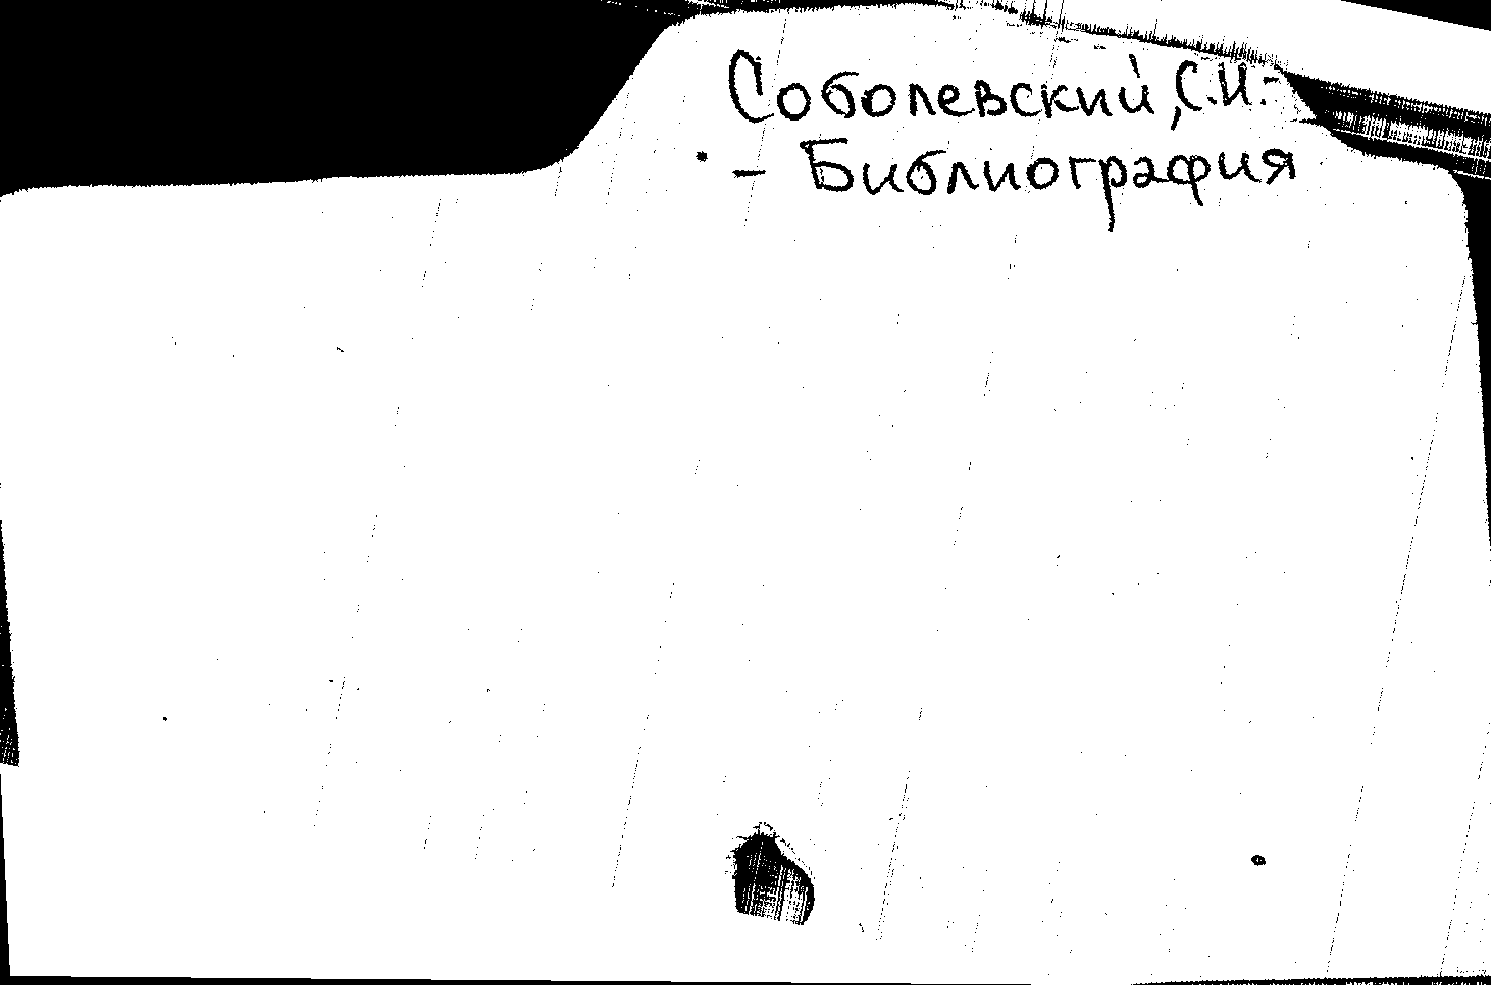 Соболевский, С.И.-
- Библиография